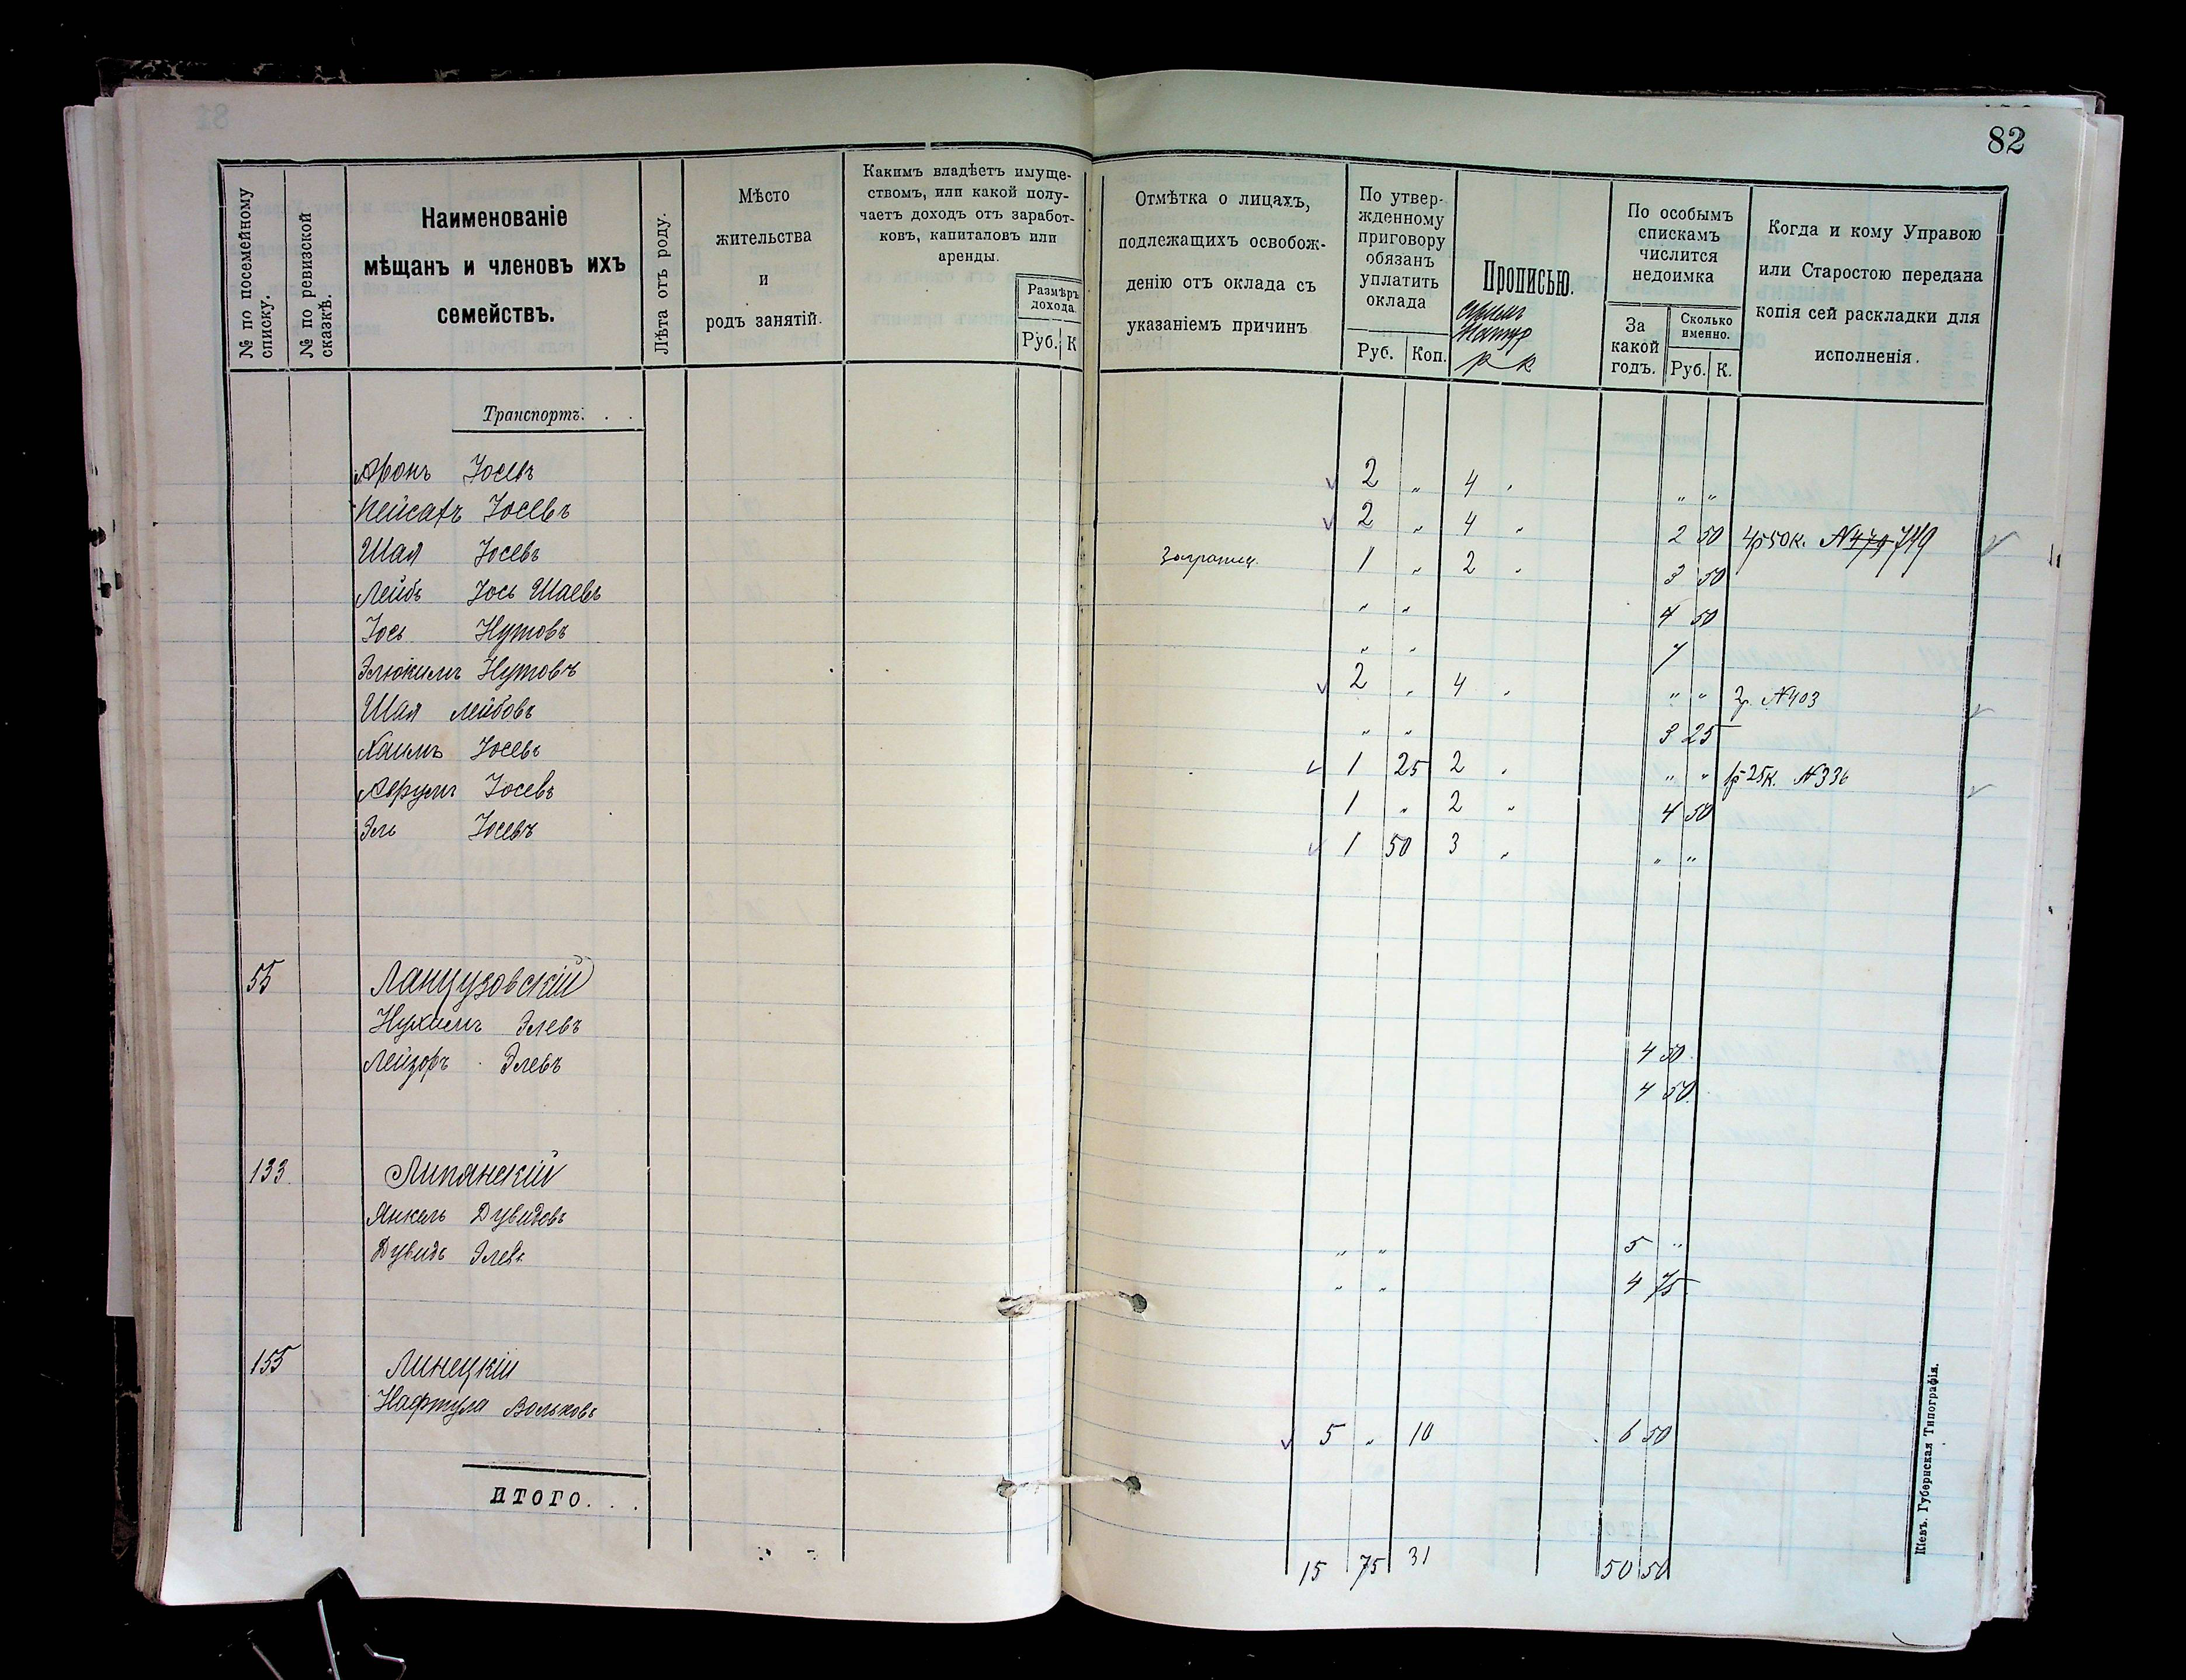 82
№ по посемейному списку.
№ по ревизской сказкѣ.
Наименованіе
мѣщанъ и членовъ ихъ
семействъ.
Лѣта отъ роду.
Мѣсто
жительства
и
родъ занятій.
Какимъ владѣетъ имуще-
ствомъ, или какой полу-
чаетъ доходъ отъ заработ-
ковъ, капиталовъ или
аренды.
Размѣръ
дохода.
Руб. К
Отмѣтка о лицахъ,
подлежащихъ освобож-
денію отъ оклада съ
указаніемъ причинъ
По утвер-
жденному
приговору
обязанъ
уплатить
оклада
Руб. Коп.
Прописью.
р к
По особымъ
спискамъ
числится
недоимка
За
какой
годъ.
Сколько
именно.
Руб. К.
Когда и кому Управою
или Старостою передана
копія сей раскладки для
исполненія.
Транспортъ. . .
Аронъ Іосевъ 2 „ 4 „ „ „
Пейсахъ Іосевъ 2 „ 4 „ 2 50 4р50к. N 479 749
Шая Іосевъ Заграниц. 1 „ 2 „ 3 50
Лейбъ Іось Шаевъ „ „ 4 50
Іось Нутовъ „ „ 7
Элюкимъ Нутовъ 2 „ 4 „ „ „ 2р. N403
Шая Лейбовъ „ „ 3 25
Хаимъ Іосевъ 1 25 2 „ „ „ 1р25к. N336
Аврумъ Іосевъ 1 „ 2 „ 4 50
Эль Іосевъ 1 50 3 „ „ „
55 Ланцузовскій
Нухимъ Элевъ 4 50
Лейзоръ Элевъ 4 50
133 Липянскій
Янкель Дувидовъ „ „ 5 „
Дувидъ Элевъ „ „ 4 75
155 Линецкій
Нафтула Вольковъ 5 „ 10 6 50
ИТОГО. . .
15 75 31 50 50
Кіевъ. Губернская Типографія.